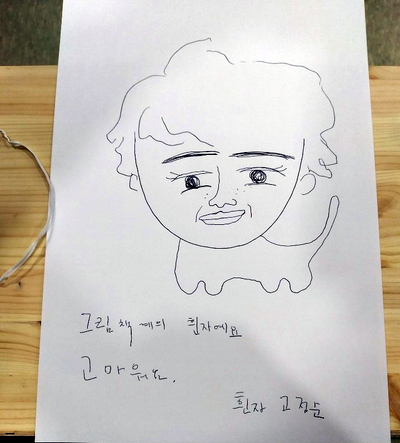 그림책 계의 흰자에요
고마워요.
흰자 고정순